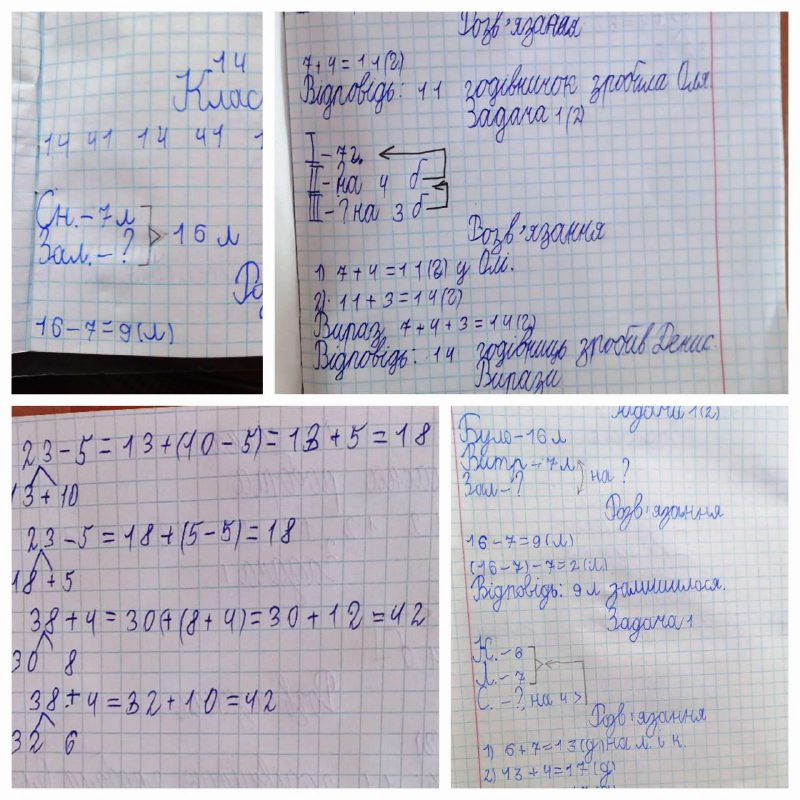 14
Клас
14 41 14 41 1
Сн.-7л
Зал.-?
16 л
Ро
16-7=9(л)
Розв'язання
7+4=11(г)
Відповідь: 11 годівничок зробила Оля.
Задача 1(2)
I-7г.
II-?на 4 б
III-?на 3 б
Розв'язання
1) 7+4=11(г) у Олі.
2) 11+3=14(г)
Вираз 7+4+3=14(г)
Відповідь: 14 годівниць зробив Денис.
Вирази
23-5=13+(10-5)=13+5=18
13+10
23-5=18+(5-5)=18
18+5
38+4=30+(8+4)=30+12=42
30 8
38+4=32+10=42
32 6
Задача 1(2)
Було-16л
Витр-7л
Зал-?
на ?
Розв'язання
16-7=9(л)
(16-7)-7=2(л)
Відповідь: 9л залишилося.
Задача 1
К.-6
Л.-7
С.-? на 4>
Розв'язання
1) 6+7=13(д) на л. і к.
2) 13+4=17(д)